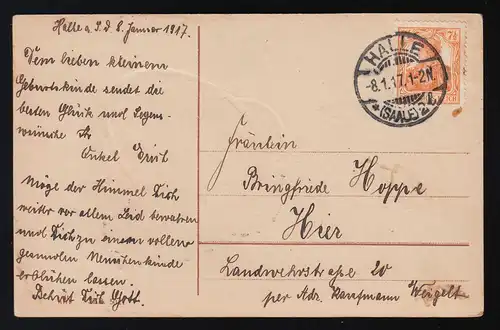 Halle a. S. d. 8. Januar 1917.
Dem lieben kleinen
Geburtskinde sendet die
besten Glück und Segens-
wünsche Ihr
Onkel
Möge der Himmel Dich
weiter vor allem Leid bewahren
und Dich zu einem vollen
Menschenkinde
erblühen lassen.
Behüt Dich Gott.
HALLE
-8.1.17.1-2N.
*(SAALE)2
7½
Fräulein
Bringfriede Hoppe
Hier
Landwehrstraße 20
per Adr. Kaufmann Weigelt